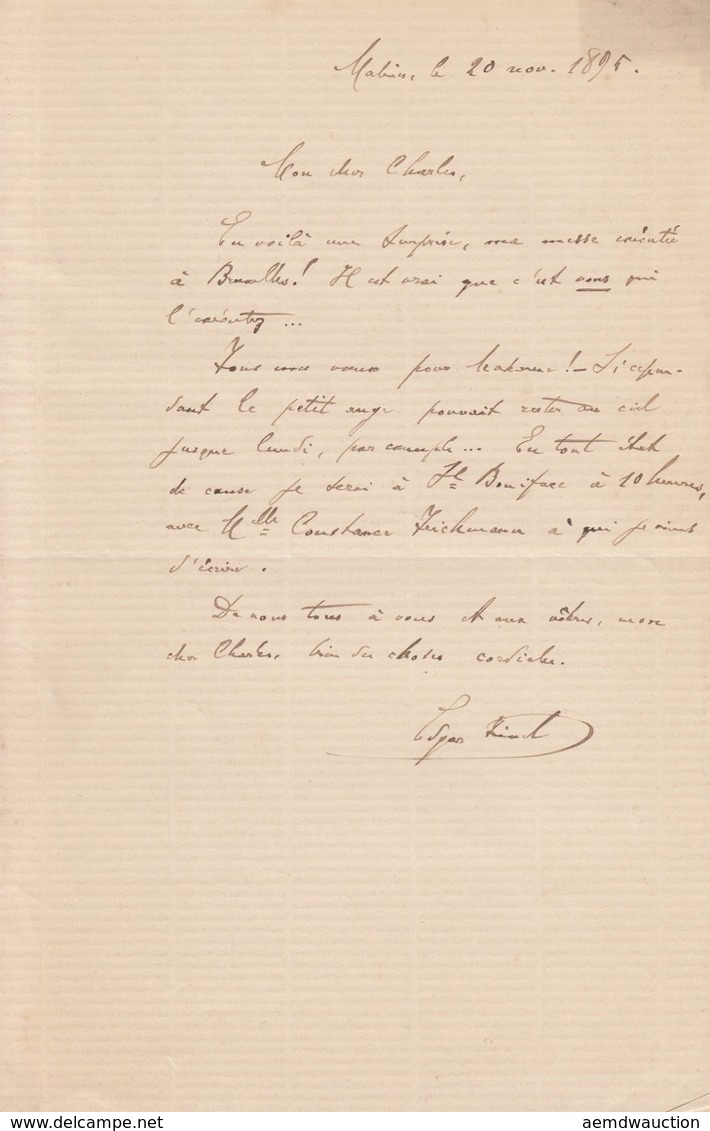 Malines, le 20 nov. 1895.
Mon cher Charles,
En voilà une surprise, ma messe exécutée
à Bruxelles! Il est vrai que c'est vous qui
l'exécutez...
Tous mes vœux pour Madame! – Si cepen-
dant le petit ange pouvait rester au ciel
jusque lundi, par exemple... En tout état
de cause je serai à St Boniface à 10 heures,
avec Mlle Constance Teichmann à qui je viens
d'écrire.
De nous tous à vous et aux vôtres, mon
cher Charles, bien des choses cordiales.
Edgar Tinel
delcampe.net
aemdwauction